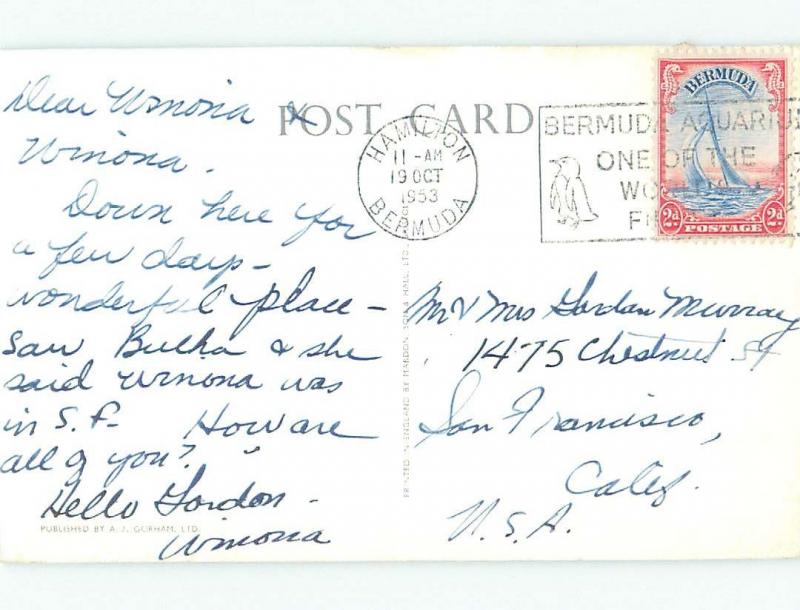 Dear Winona &
Winona.
Down here for
a few days -
wonderful place -
saw Butha & she
said Winona was
in S.F. - How are
all of you?
Hello Gordon -
Winona
PUBLISHED BY A. J. GORHAM, LTD.
POST CARD
HAMILTON
11-AM
19 OCT
1953
BERMUDA
BERMUDA AQUARIU
ONE OF THE
WO
FI
BERMUDA
2d 2d
POSTAGE
PRINTED IN ENGLAND BY MARDON, SON & HALL, LTD.
Mr & Mrs Gordon Murray
1475 Chestnut St
San Francisco,
Calif.
U.S.A.